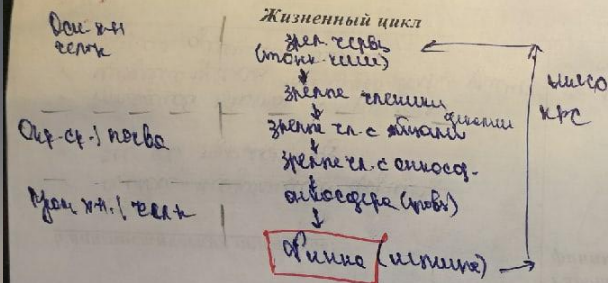 Жизненный цикл
Осн. х-н
чел-к
зрел. червь
(тонк. киш)
зрелые членики
фекалии
Окр. ср. | почва
зрелые чл. с яйцами
зрелые чл. с онкосф.
Пром. х-н. | чел-к
онкосфера (кровь)
Финна (мышца)
мясо
КРС